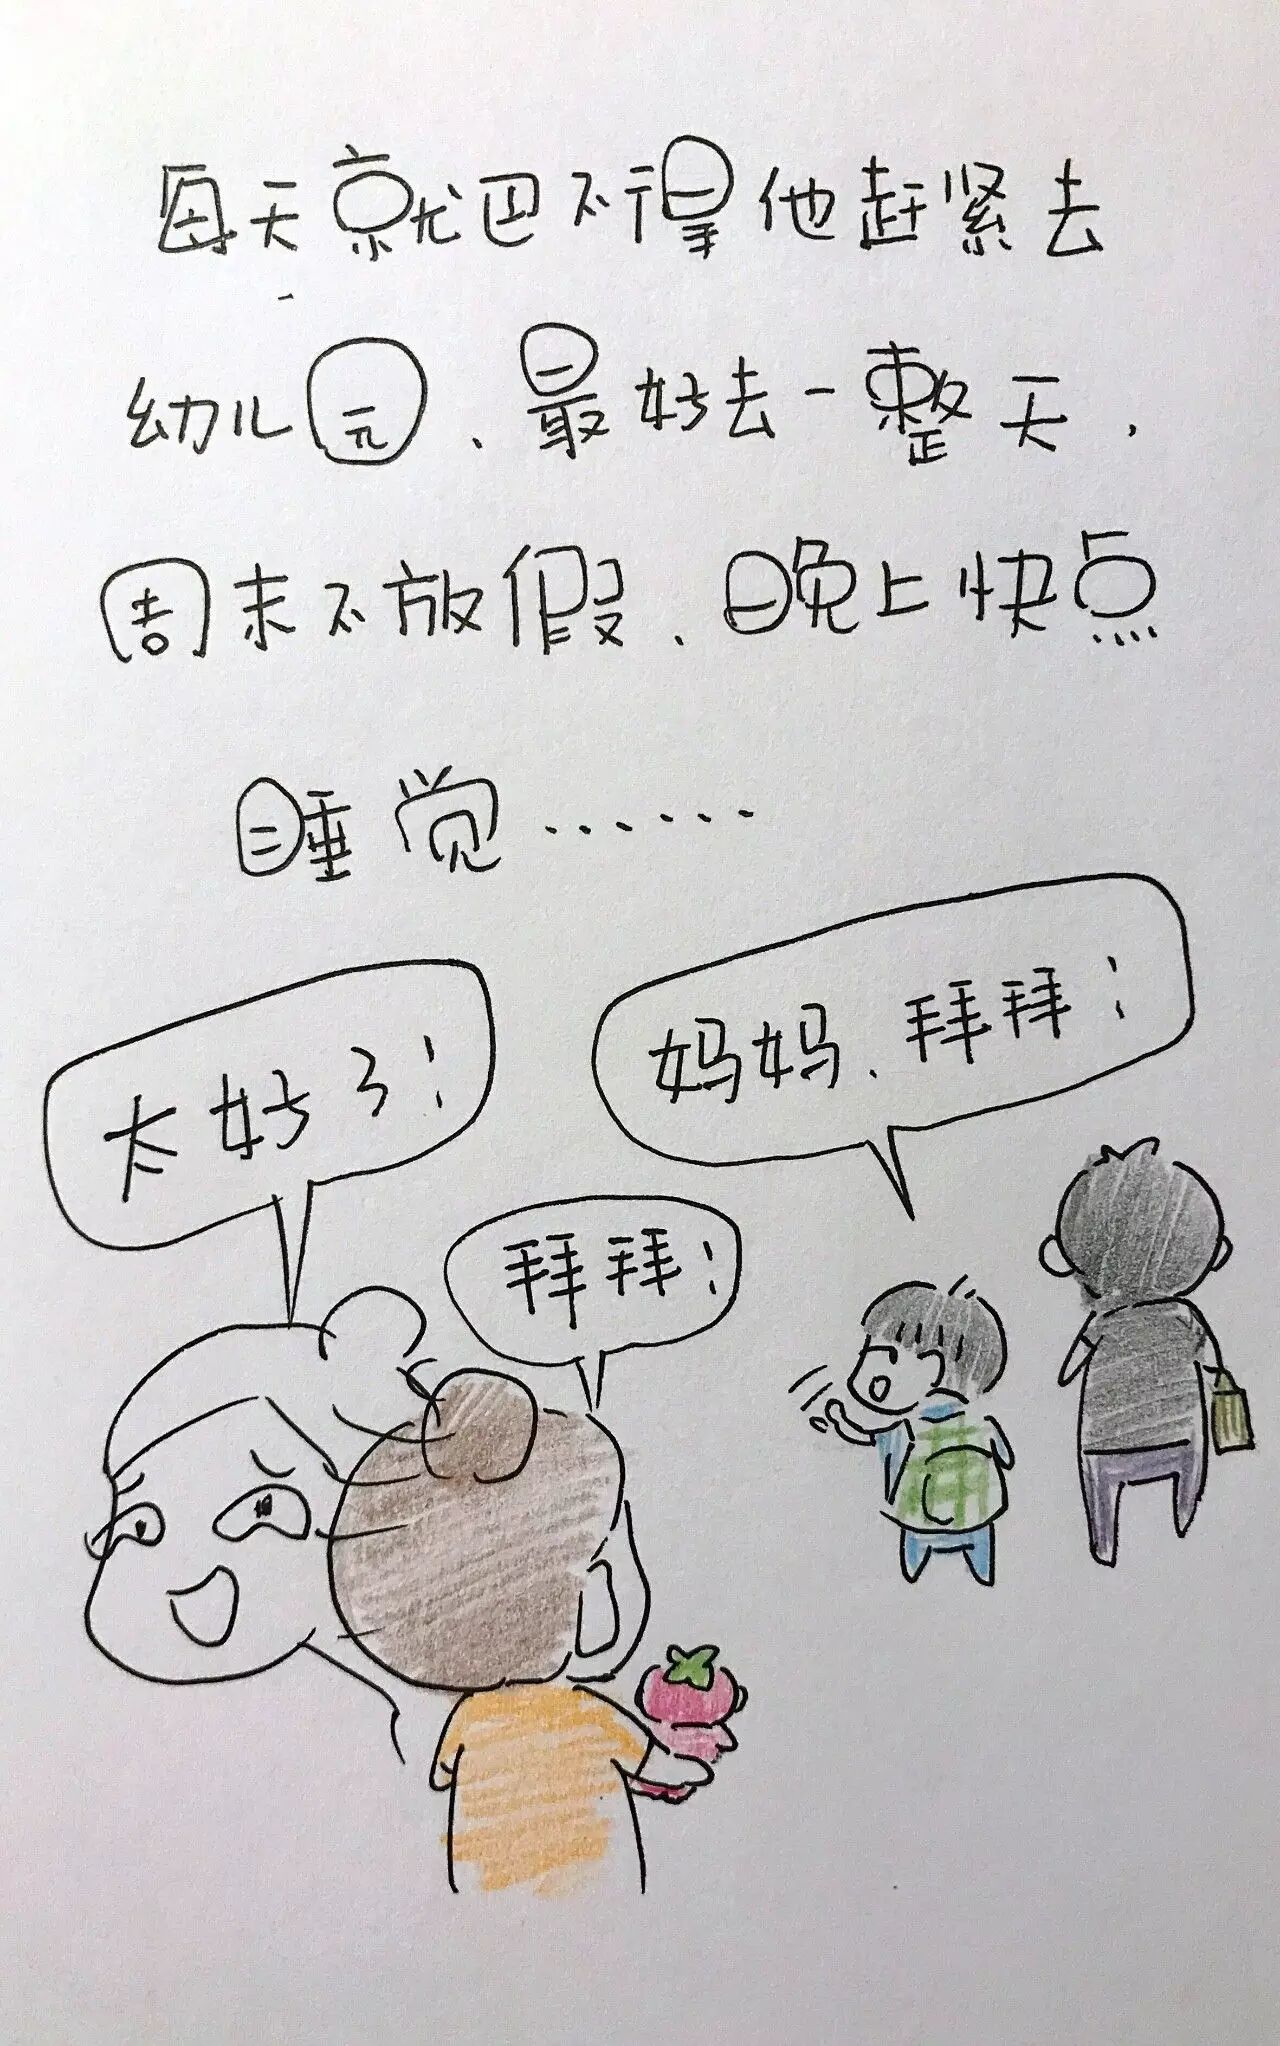 每天就巴不得他赶紧去
幼儿园、最好去一整天,
周末不放假、晚上快点
睡觉……
太好了!
妈妈、拜拜!
拜拜!